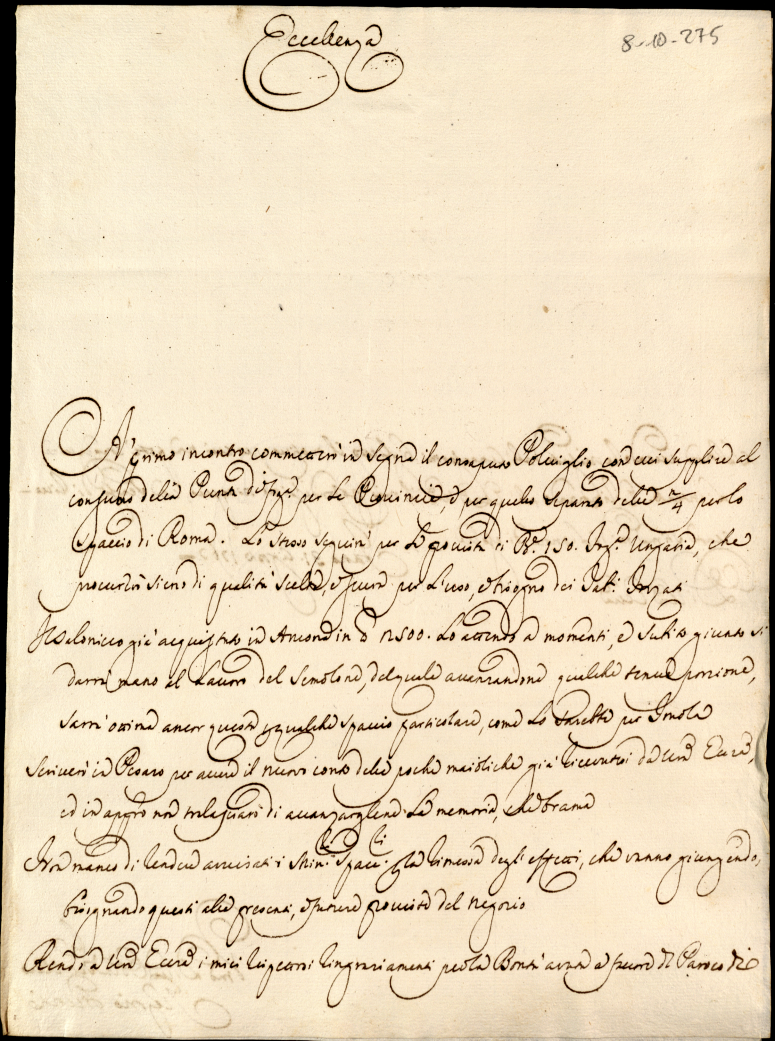 Eccellenza
8-10-275
A' primo incontro commetterò in Segna il consaputo Polviglio con cui supplire al
consumo della Punta per le Provincie, e per quello separato delle 2/4 per lo
spaccio di Roma. Lo stesso seguirà per le provista di B.e 150. Ungaria, che
procurerò sieno di qualità scelta, e sicura per l'uso, e bisogno dei
Il Salonicco già acquistato in Ancona in 12500. Lo attendo a momenti, e subito giunto si
darrà mano al Lavoro del Semolone, del quale avanzandone qualche tenue porzione,
sarrà ottima ancor questa qualche spaccio particolare, come lo sarebbe per Imola
Scriverò in Pesaro per avere il nuovo conto delle poche maioliche già ricevutesi da Vra Eccza,
ed in appso non trelasciarò di avanzargliene la memoria, che brama
Non manco di rendere avvisati i Min. Spacc. p la rimessa degl'effetti, che vanno giungendo,
bisognando questi alle presenti, e future provviste del negozio
Rendo a Vra Eccza i miei rispettosi ringraziamenti per la Bontà avuta a favore del Paroco di